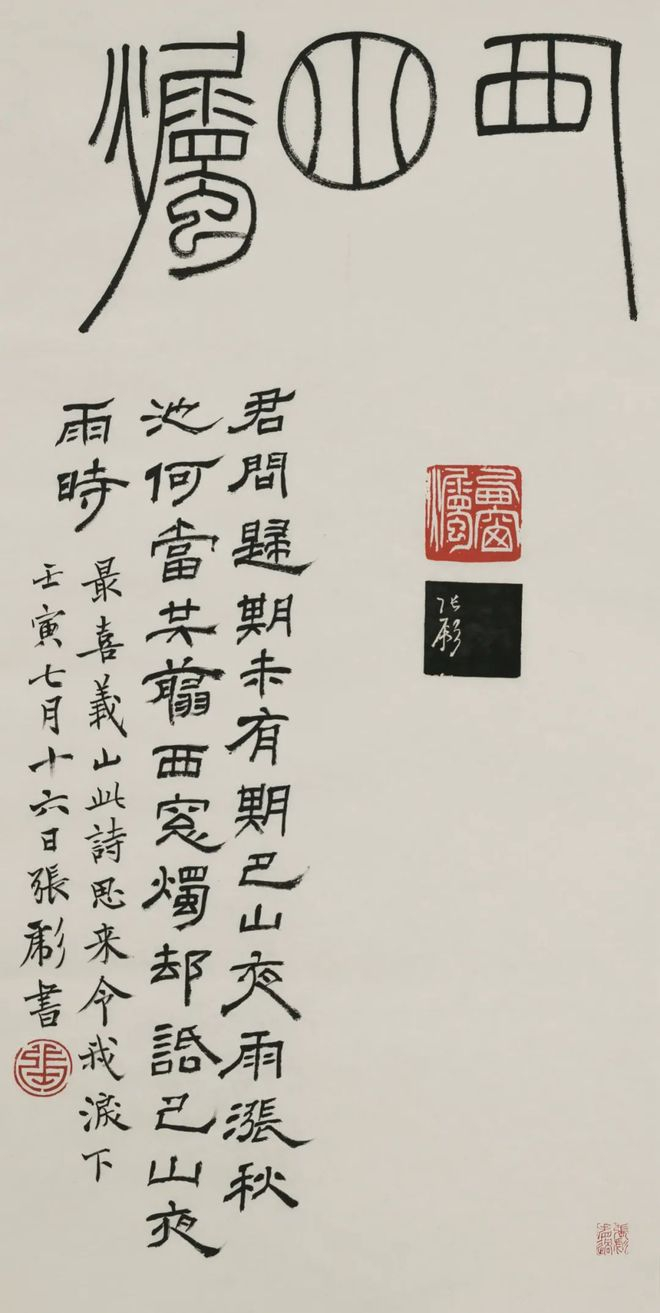 西窗燭
君問歸期未有期巴山夜雨漲秋
池何當共翦西窓燭却話巴山夜
雨時
最喜義山此詩思来令我淚下
壬寅七月十六日張彪書